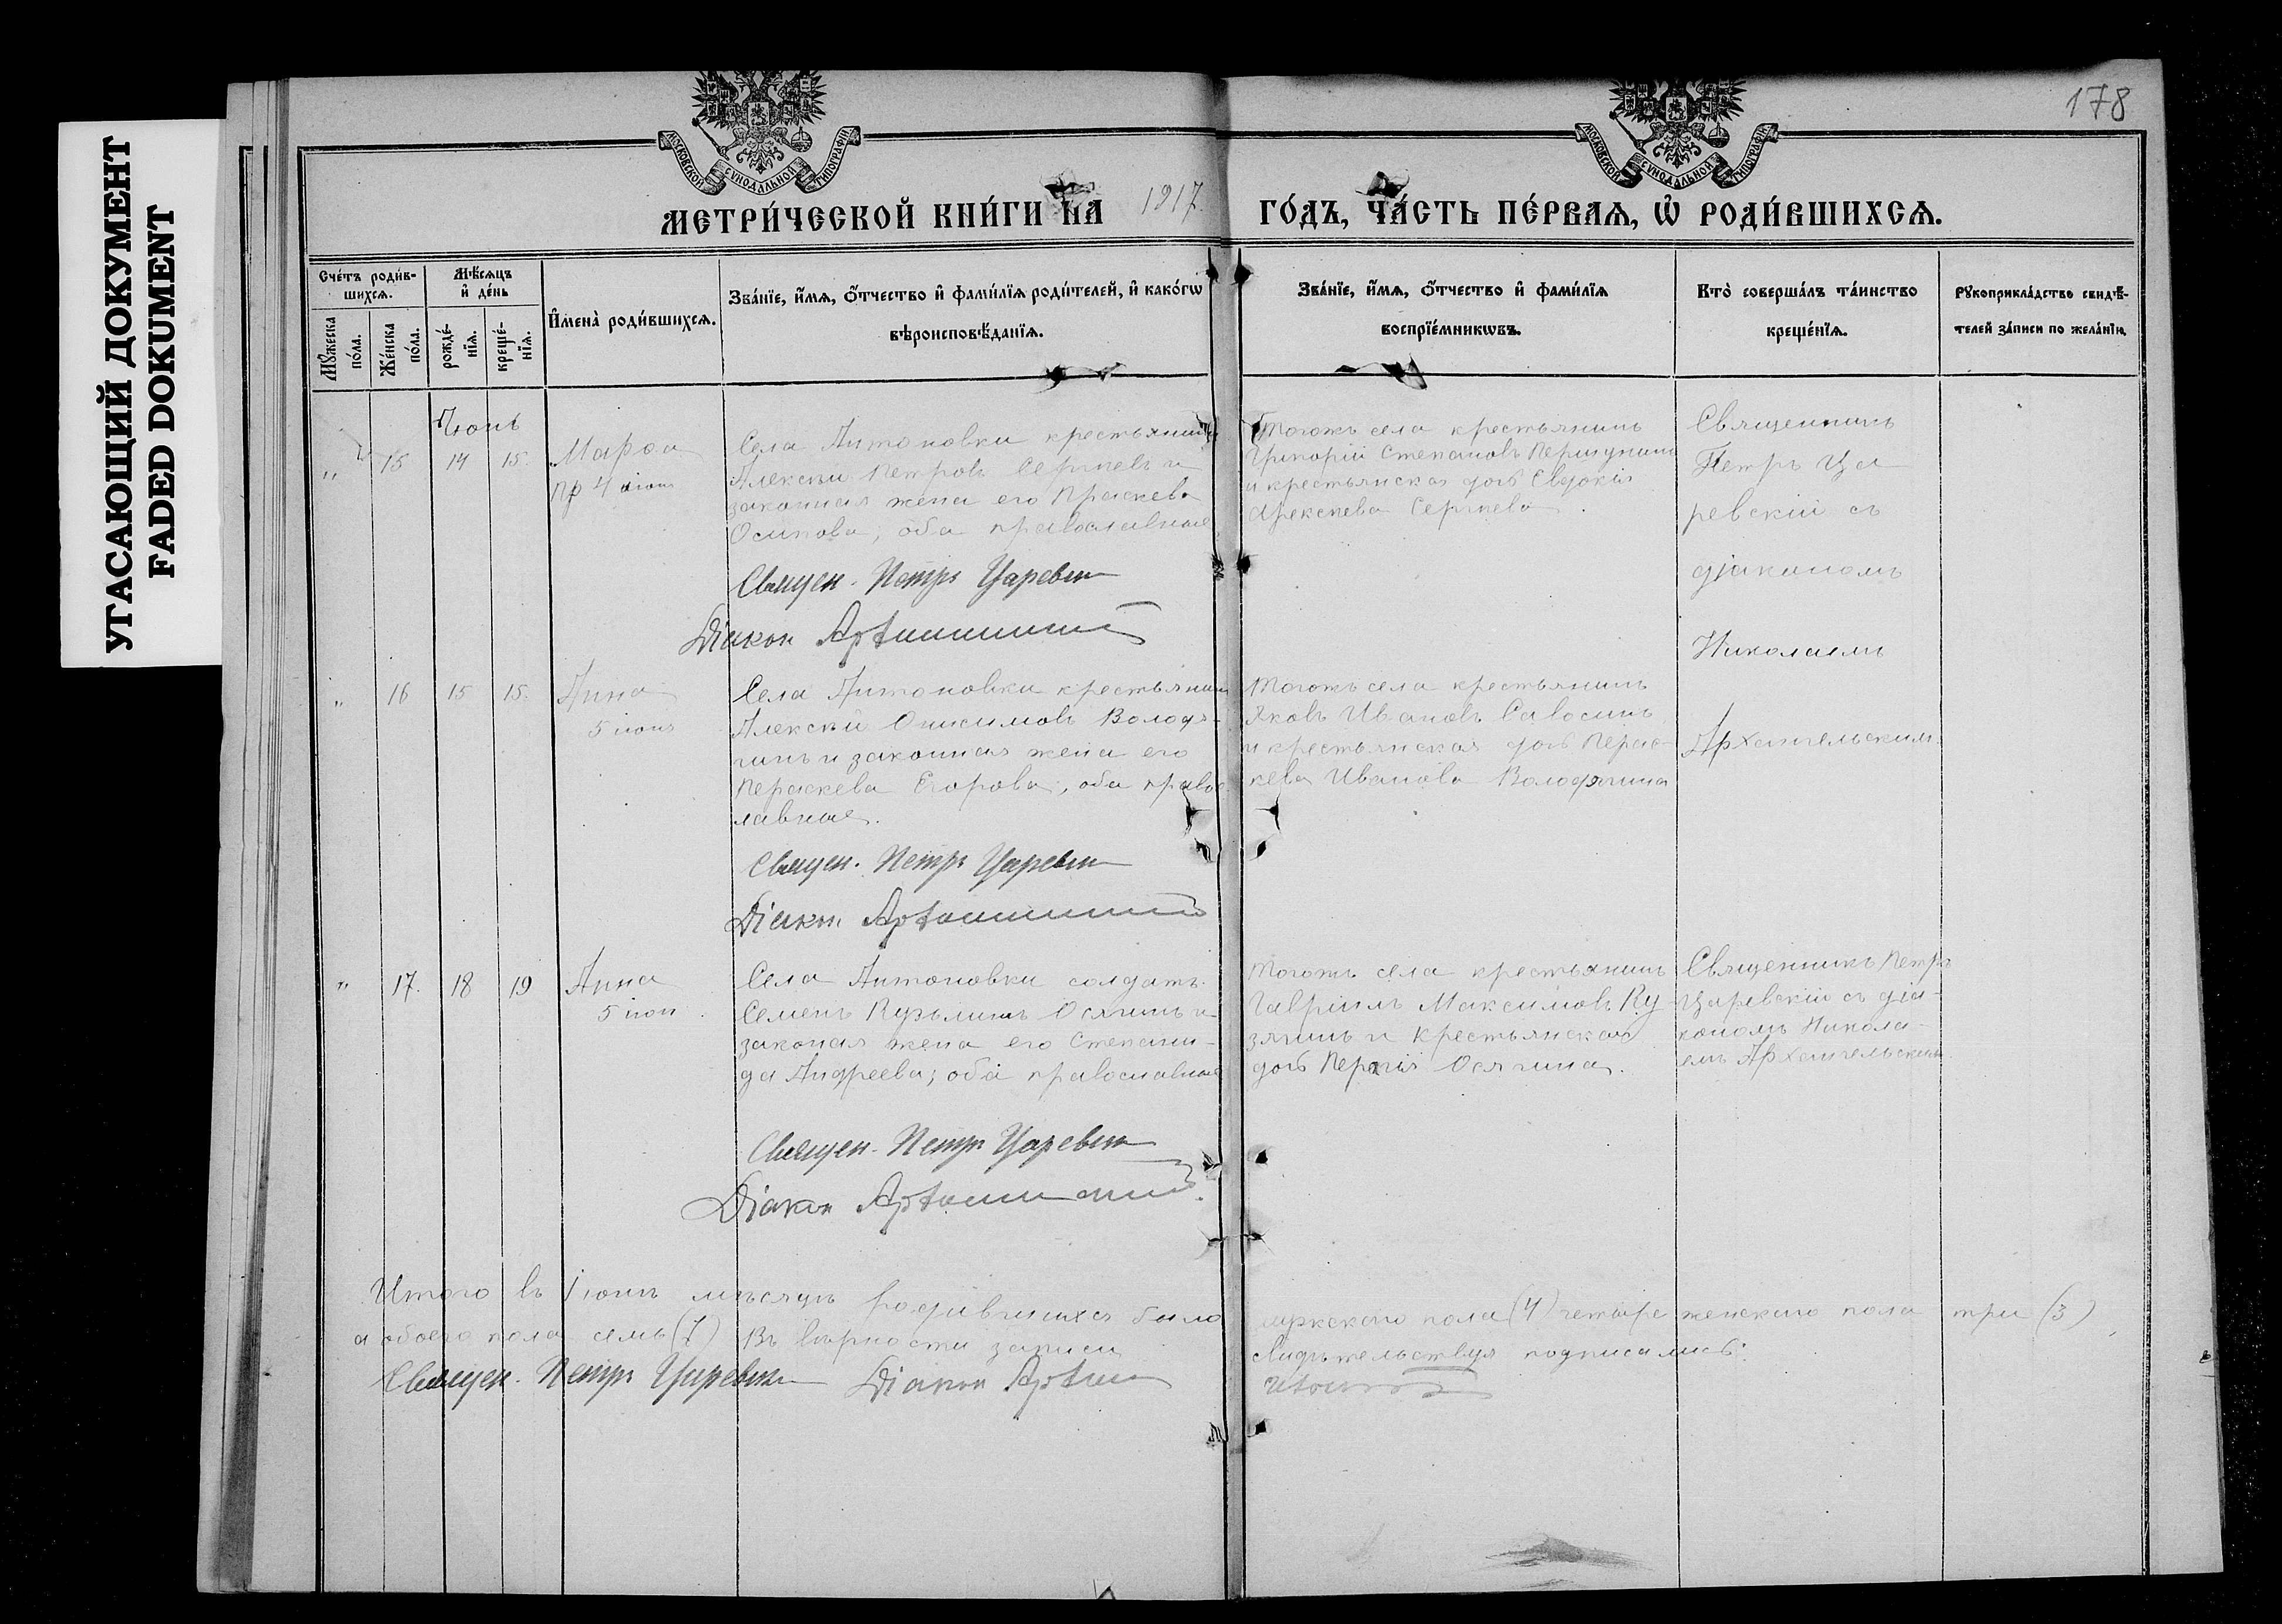 УГАСАЮЩИЙ ДОКУМЕНТ
FADED DOKUMENT
178
МОСКОВСКОЙ СѴНОДАЛЬНОЙ ТИПОГРАФІИ
МОСКОВСКОЙ СѴНОДАЛЬНОЙ ТИПОГРАФІИ
МЕТРИ́ЧЕСКОЙ КНИ́ГИ НА 1917 ГО́ДЪ, ЧА́СТЬ ПЕ́РВАЯ, Ѡ РОДИ́ВШИХСЯ.
Сче́тъ роди́в-
шихся.
Му́жеска
по́ла.
Же́нска
по́ла.
Мѣ́сяцъ
и де́нь
рожде́-
нїя.
креще́-
нїя.
Имена̀ роди́вшихся.
Зва́нїе, и́мя, о́тчество и фами́лїя роди́телей, и како́гѡ
вѣроисповѣ́данїя.
Зва́нїе, и́мя, о́тчество и фами́лїя
воспрїе́мникѡвъ.
Кто̀ соверша́лъ та́инство
креще́нїя.
Рукоприкла́дство свидѣ́-
телей за́писи по жела́нїю.
Іюнь
" 15 14 15. Марѳа
пр 4 іюня
Села Антоновки крестьянинъ
Алексѣй Петровъ Сергѣевъ и
законная жена его Праскева
Осипова, оба православные
Священ. Петръ Царевскій
Діаконъ Архангельскій
Тогожъ села крестьянинъ
Григорій Степановъ
и крестьянская дочь Евдокія
Алексѣева Сергѣева.
Священникъ
Петръ Ца-
ревскій съ
діакономъ
Николаемъ
Архангельскимъ
" 16 15 15. Анна
5 іюня
Села Антоновки крестьянинъ
Алексѣй Онисимовъ Володя-
гинъ и законная жена его
Пераскева Егорова, оба правос-
лавные.
Священ. Петръ Царевскій
Діаконъ Архангельскій
Тогожъ села крестьянинъ
Яковъ Ивановъ Савосинъ
и крестьянская дочь Перас-
кева Иванова Володягина
" 17. 18 19 Анна
5 іюн
Села Антоновки солдатъ
Семенъ Кузьминъ Осягинъ и
законая жена его Степани-
да Андреева; оба православные
Священ. Петръ Царевскій
Діаконъ Архангельскій
Тогожъ села крестьянинъ
Гавріилъ Максимовъ Ку-
зягинъ и крестьянская
дочь Осягина.
Священникъ Петръ
Царевскій съ діа-
кономъ Никола-
емъ Архангельскимъ
Итого въ Іюнѣ мѣсяцѣ родившихся было мужскаго пола (4) четыре женскаго пола три (3)
а обоего пола семь (7) Въ вѣрности записи свидѣтельствуя подписались:
Священ. Петръ Царевскій Діаконъ Архангельскій